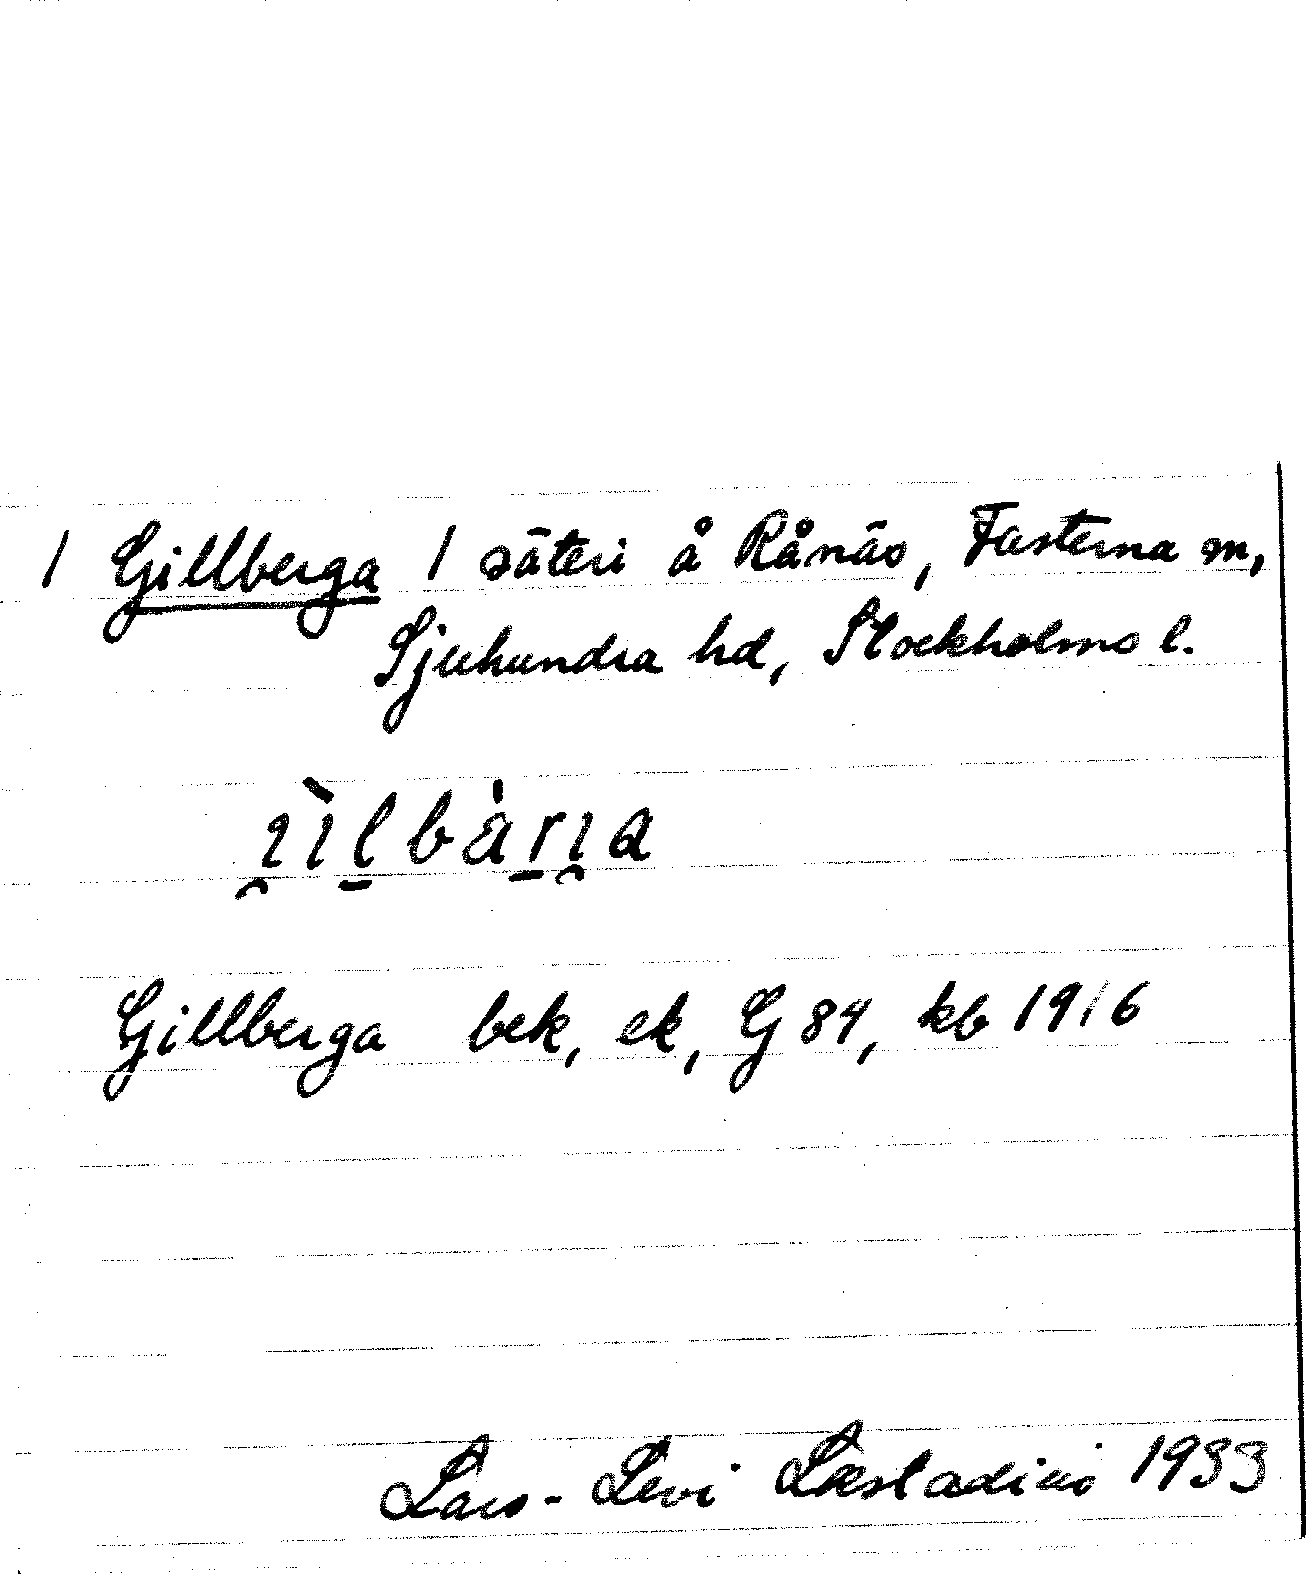 1 Gillberga 1 säteri å Rånäs, Fasterna sn,
Sjuhundra hd, Stockholms l.
ı̯ìl̠bàr̠ı̯a
Gillberga bek, ek, G 84, kb 1916
Lars-Levi Læstadius 1933